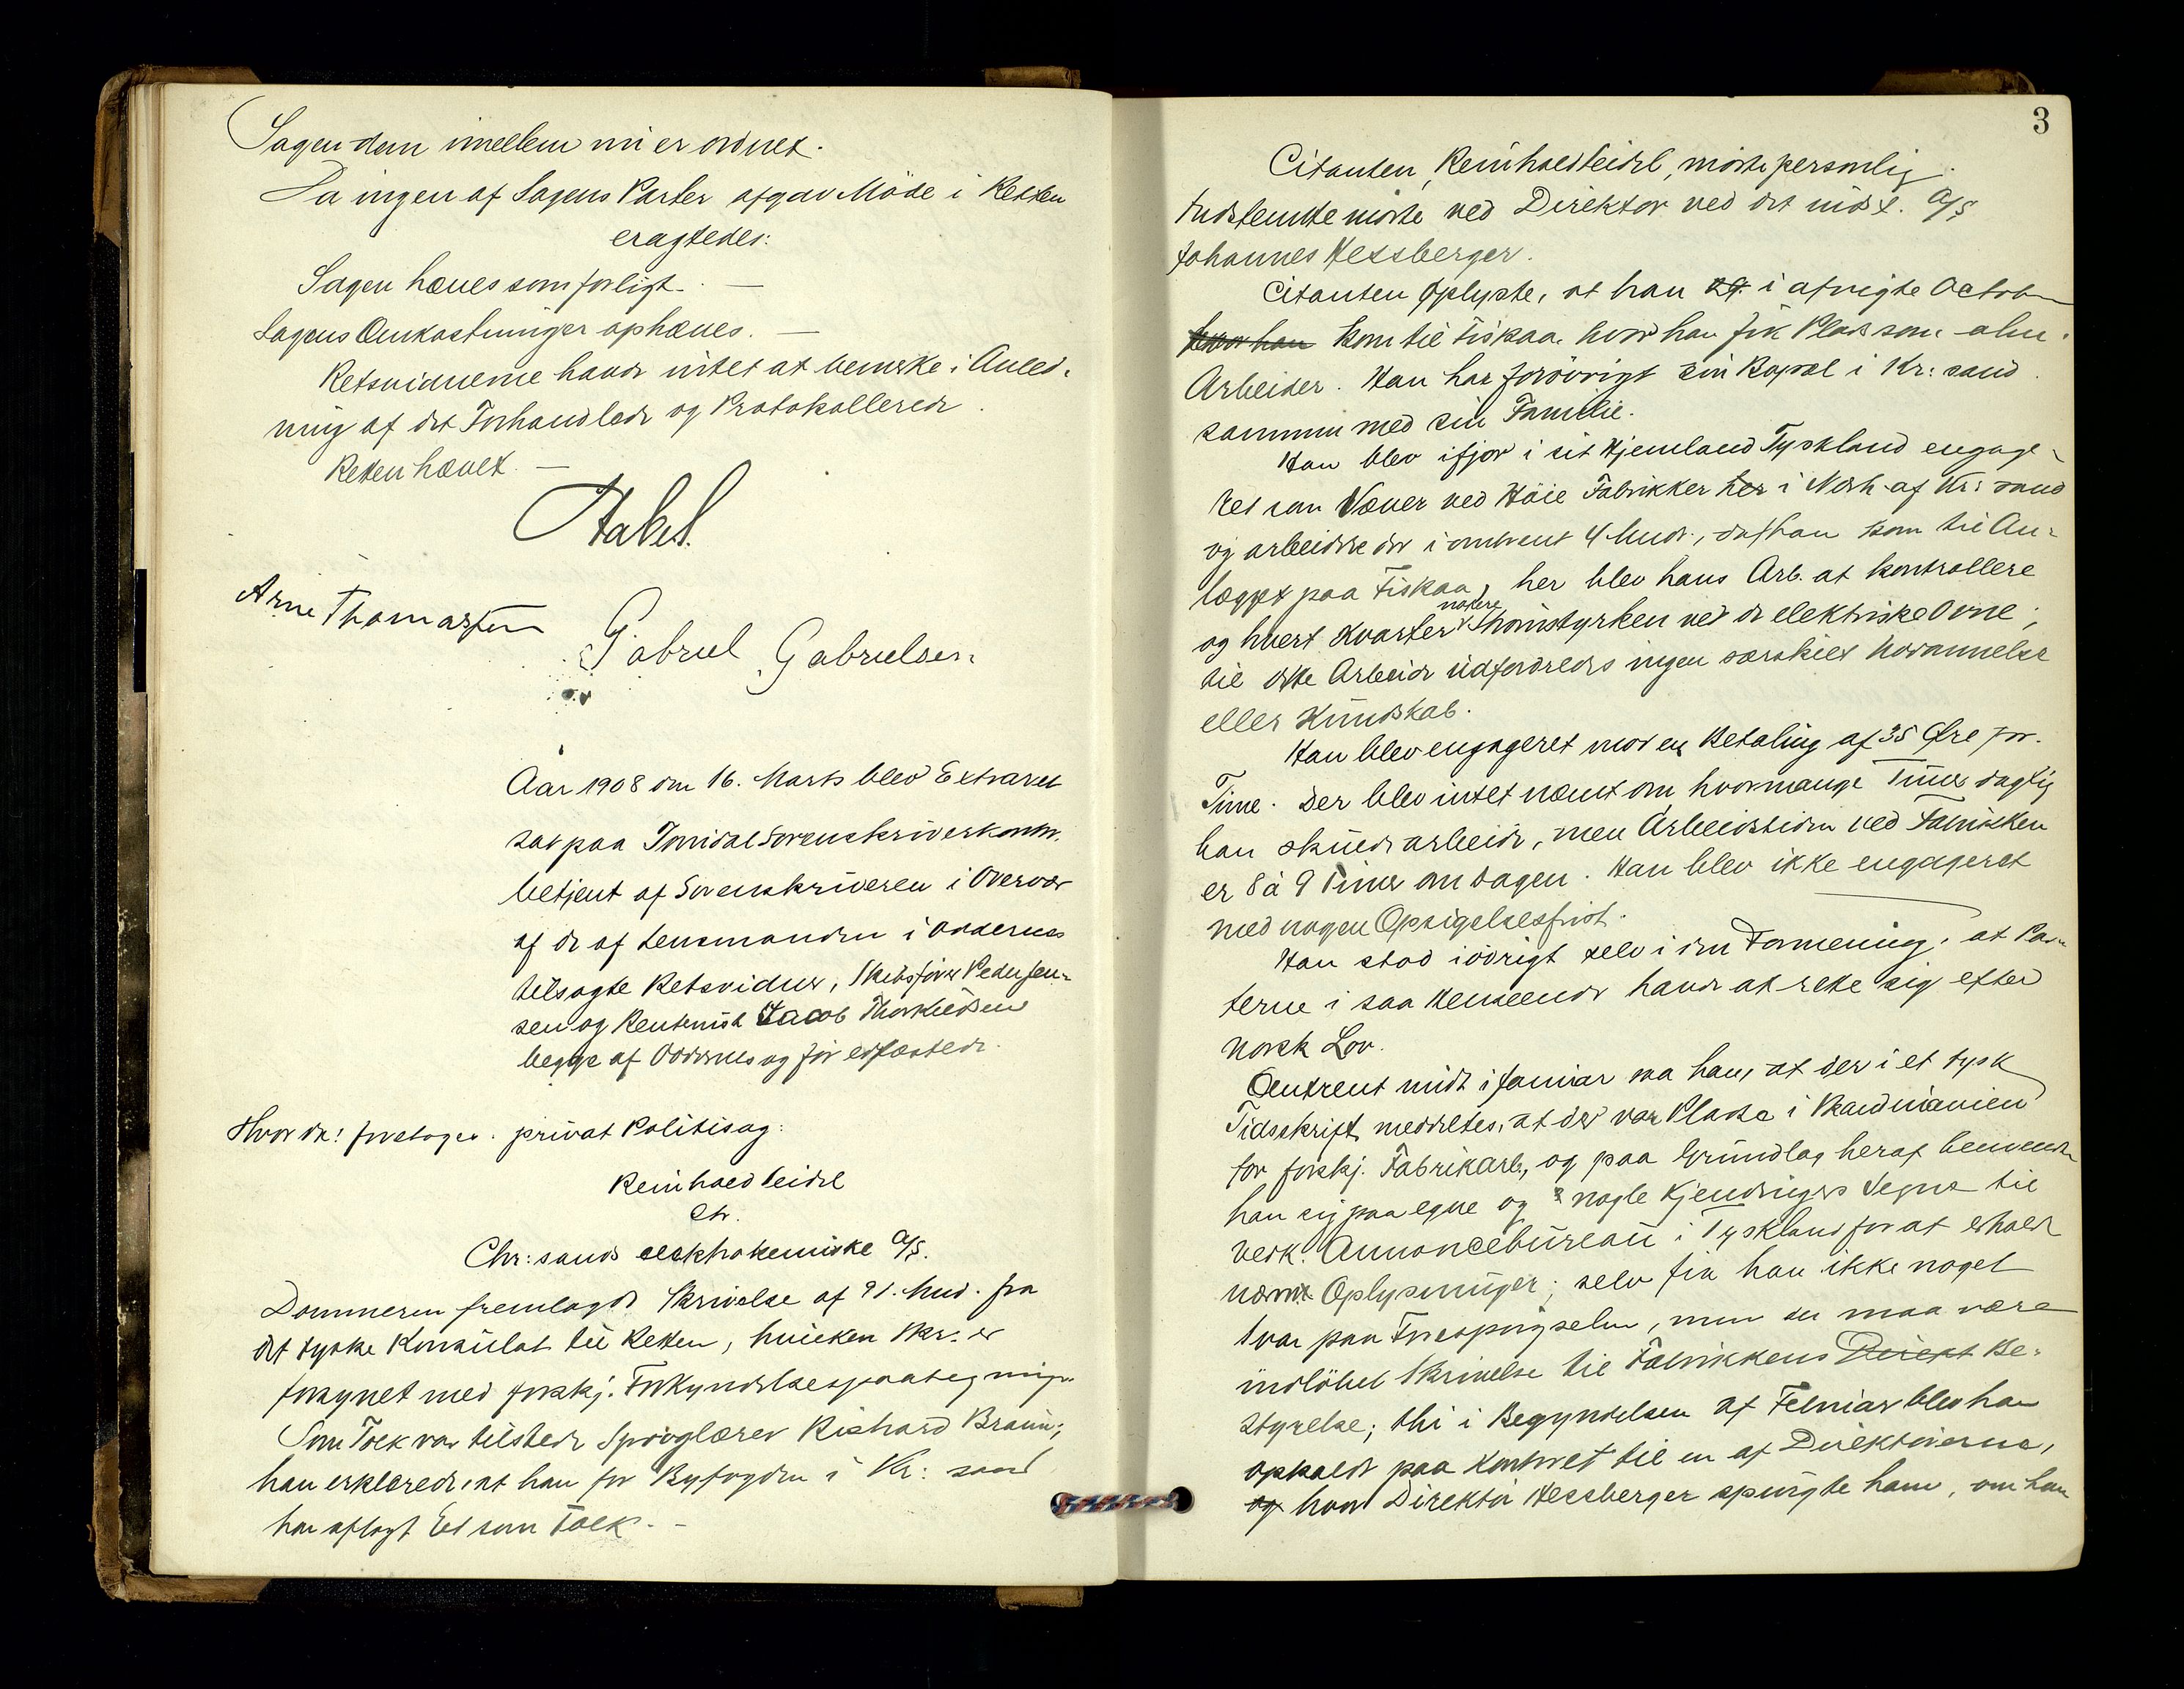 Sagen dem imellem nu er ordnet.
Da ingen af Sagens Parter afgav Møde i Retten
eragtedes:
Sagen hæves som forligt. —
Sagens Omkostninger ophæves. —
Retsvidnerne havde intet at bemerke i Anled-
ning af det Forhandlede og Protokollerede.
Retten hævet. —
Stabel.
Arne Thomassen
Gabriel Gabrielsen.
Aar 1908 den 16. Marts blev Extraret
sat paa Torridal Sorenskriverkontor,
betjent af Sorenskriveren i Overvær
af de af Lensmanden i Oddernes
tilsagte Retsvidner, Skibsfører Pedersen
sen og Rentenist Jacob Thorkildsen
begge af Oddernes og før edfæstede.
Hvor da: foretoges privat Politisag:
Reinhold Seidel
ctr.
Chr:sands elektrokemiske A/S.
Dommeren fremlagde Skrivelse af 9 d. Mnd. fra
det tyske Konsulat til Retten, hvilken Skr. er
forsynet med forskj. Forkyndelsespaategning.
Som Tolk var tilstede Sproglærer Richard Braun;
han erklærede, at han for Byfogden i Kr:sand
har aflagt Ed som Tolk. —
3
Citanten, Reinhold Seidel, mødte personlig.
Indstevnte mødte ved Direktør ved det indst. A/S
Johannes Hessberger.
Citanten oplyste, at han og i afvigte October
hvor han kom til Fiskaa, hvor han fik Plads som alm.
Arbeider. Han har forøvrigt sin Bopæl i Kr:sand
sammen med sin Familie.
Han blev ifjor i sit Hjemland Tyskland engage-
ret som Væver ved Høie Fabrikker her i Nærh. af Kr:sand
og arbeidede der i omtrent 4 Mndr., da han kom til An-
lægget paa Fiskaa, her blev hans Arb. at kontrollere
og hvert Kvarter notere Strømstyrken ved de elektriske Ovne;
til dette Arbeide udfordredes ingen særskilt Uddannelse
eller Kundskab.
Han blev engageret mod en Betaling af 35 Øre pr.
Time. Der blev intet nævnt om hvormange Timer daglig
han skulde arbeide, men Arbeidstiden ved Fabrikken
er 8 à 9 Timer om Dagen. Han blev ikke engageret
med nogen Opsigelsesfrist.
Han stod iøvrigt selv i den Formening, at Par-
terne i saa Henseende havde at rette sig efter
norsk Lov.
Omtrent midt i Januar saa han, at der i et tysk
Tidsskrift meddeltes, at der var Plads i Skandinavien
for forskj. Fabrikarb., og paa Grundlag heraf henvendte
han sig paa egne og nogle Kjendinges Vegne til
vedk. Annoncebureau i Tyskland for at erholde
nærm. Oplysninger; selv fik han ikke noget
Svar paa Forespørgselen, men der maa være
indløbet Skrivelse til Fabrikkens Direkt Be-
styrelse; thi i Begyndelsen af Februar blev han
opkaldt paa Kontoret til en af Direktørerne,
og hvor Direktør Hessberger spurgte ham, om han